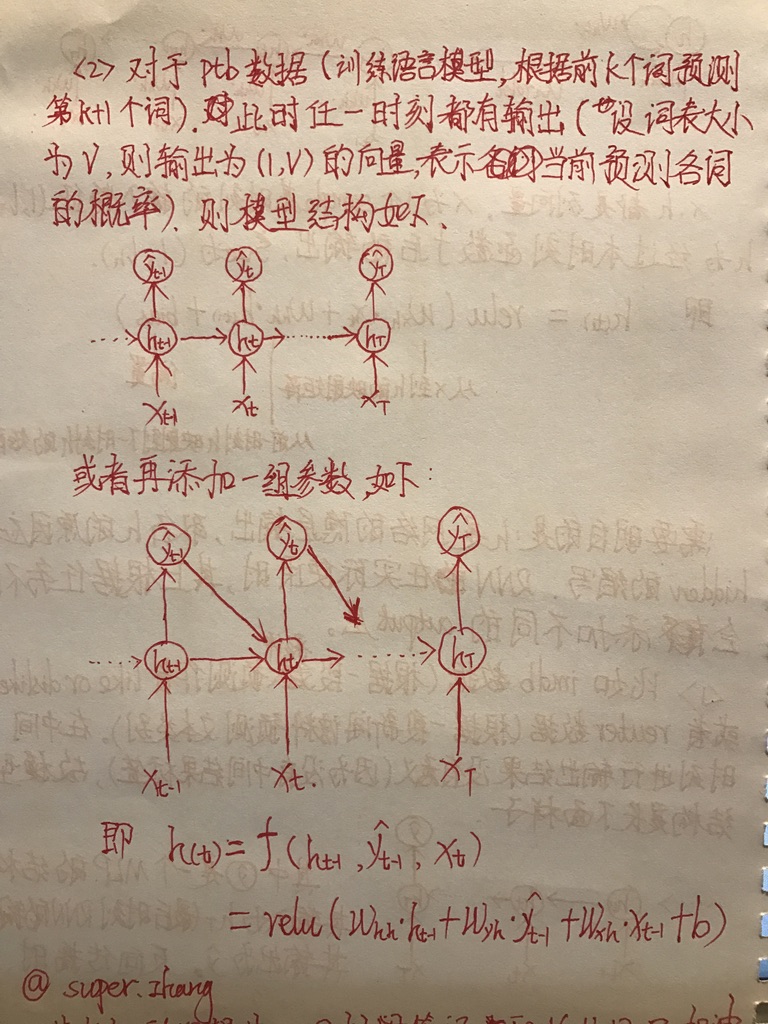 <2> 对于ptb数据(训练语言模型,根据前k个词预测
第k+1个词).此时任一时刻都有输出(设词表大小
为V,则输出为(1,V)的向量,表示当前预测各词
的概率).则模型结构如下.
ŷt-1 ŷt ŷT
ht-1 ht hT
xt-1 xt xT
或者再添加一组参数,如下:
ŷt-1 ŷt ŷT
ht-1 ht hT
xt-1 xt. xT
即 h(t) = f(ht-1, ŷt-1, xt)
= relu(Whh·ht-1+Wyh·ŷt-1+Wxh·xt-1+b)
@ super.zhang